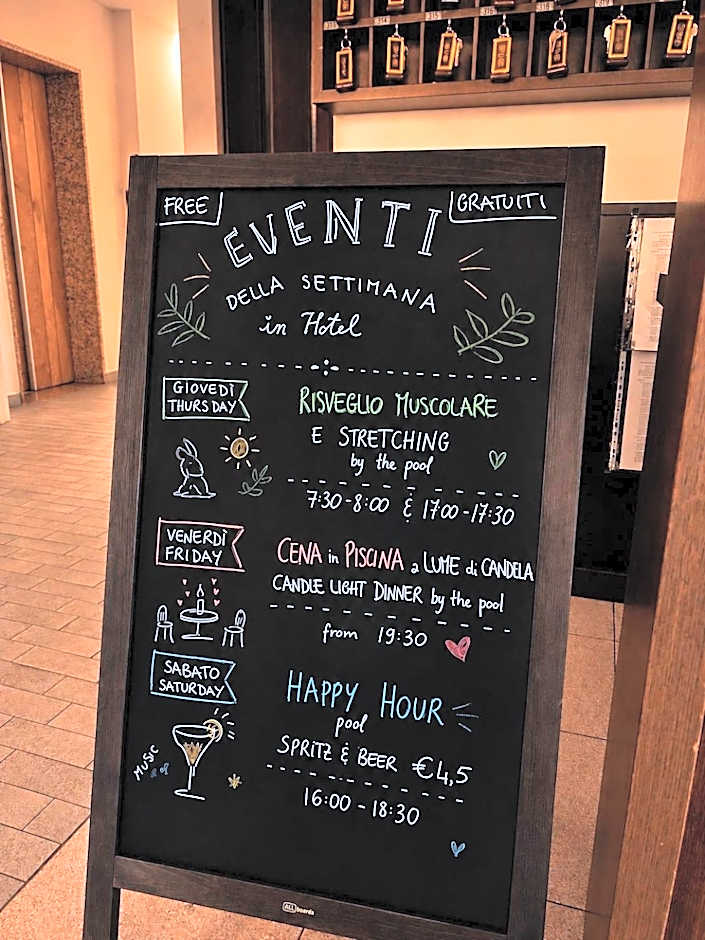 314 315 316
FREE
GRATUITI
EVENTI
DELLA SETTIMANA
in Hotel
GIOVEDÌ
THURSDAY
RISVEGLIO MUSCOLARE
E STRETCHING
by the pool
7:30-8:00 & 17:00-17:30
VENERDÌ
FRIDAY
CENA in PISCINA a LUME di CANDELA
CANDLE LIGHT DINNER by the pool
from 19:30
SABATO
SATURDAY
HAPPY HOUR
pool
MUSIC
SPRITZ & BEER €4,5
16:00 - 18:30
ALLboards